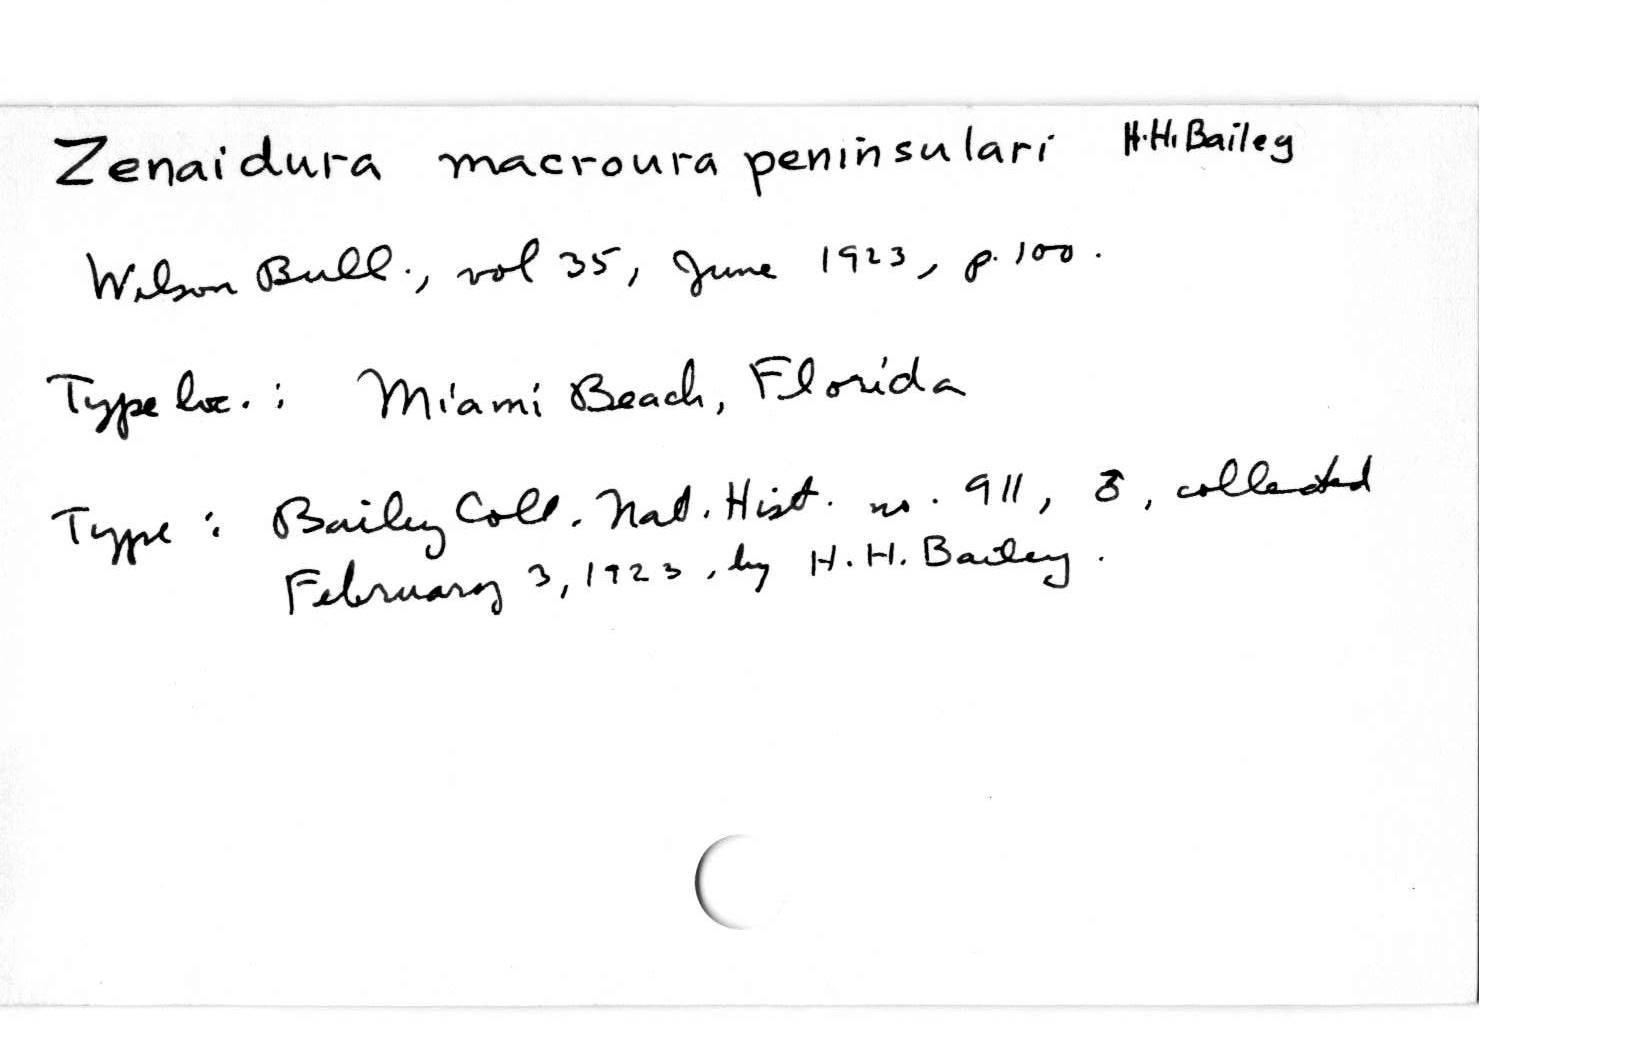 Zenaidura macroura peninsulari H.H. Bailey
Wilson Bull., vol 35, June 1923, p. 100.
Type loc.: Miami Beach, Florida
Type: Bailey Coll. Nat. Hist. no. 911, ♂, collected
February 3, 1923, by H. H. Bailey.